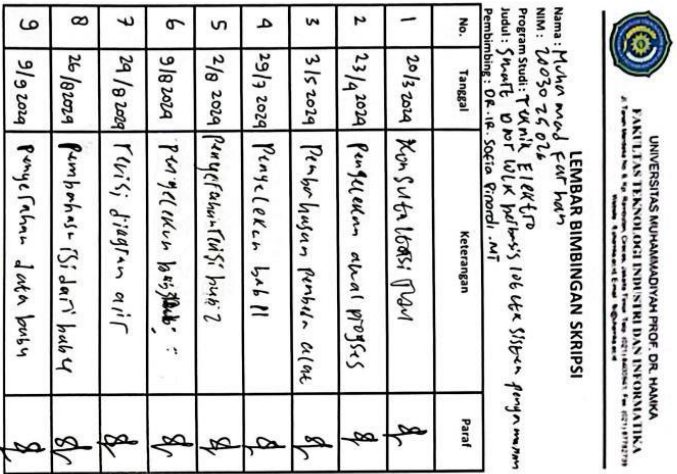 UNIVERSITAS MUHAMMADIYAH PROF. DR. HAMKA
FAKULTAS TEKNOLOGI INDUSTRI DAN INFORMATIKA
LEMBAR BIMBINGAN SKRIPSI
Nama : Muhammad Farhan
NIM : 2003025026
Program Studi : Teknik Elektro
Judul : Smart Door Lock berbasis
Pembimbing : DR. IR. Sofia Pinardi .MT
No. Tanggal Keterangan Paraf
1 20/3 2024 Konsultasi
2 23/4 2024 Pengelekan awal progses
3 3/5 2024 Pembahasan
4 29/7 2024 Penyelekan bab II
5 2/8 2024 Penyerahan revisi bab 2
6 9/8 2024
7 29/8 2024 revisi diagram air
8 26/8 2024 Pembahasn isi dari bab 4
9 9/9 2024 Penyerahan data